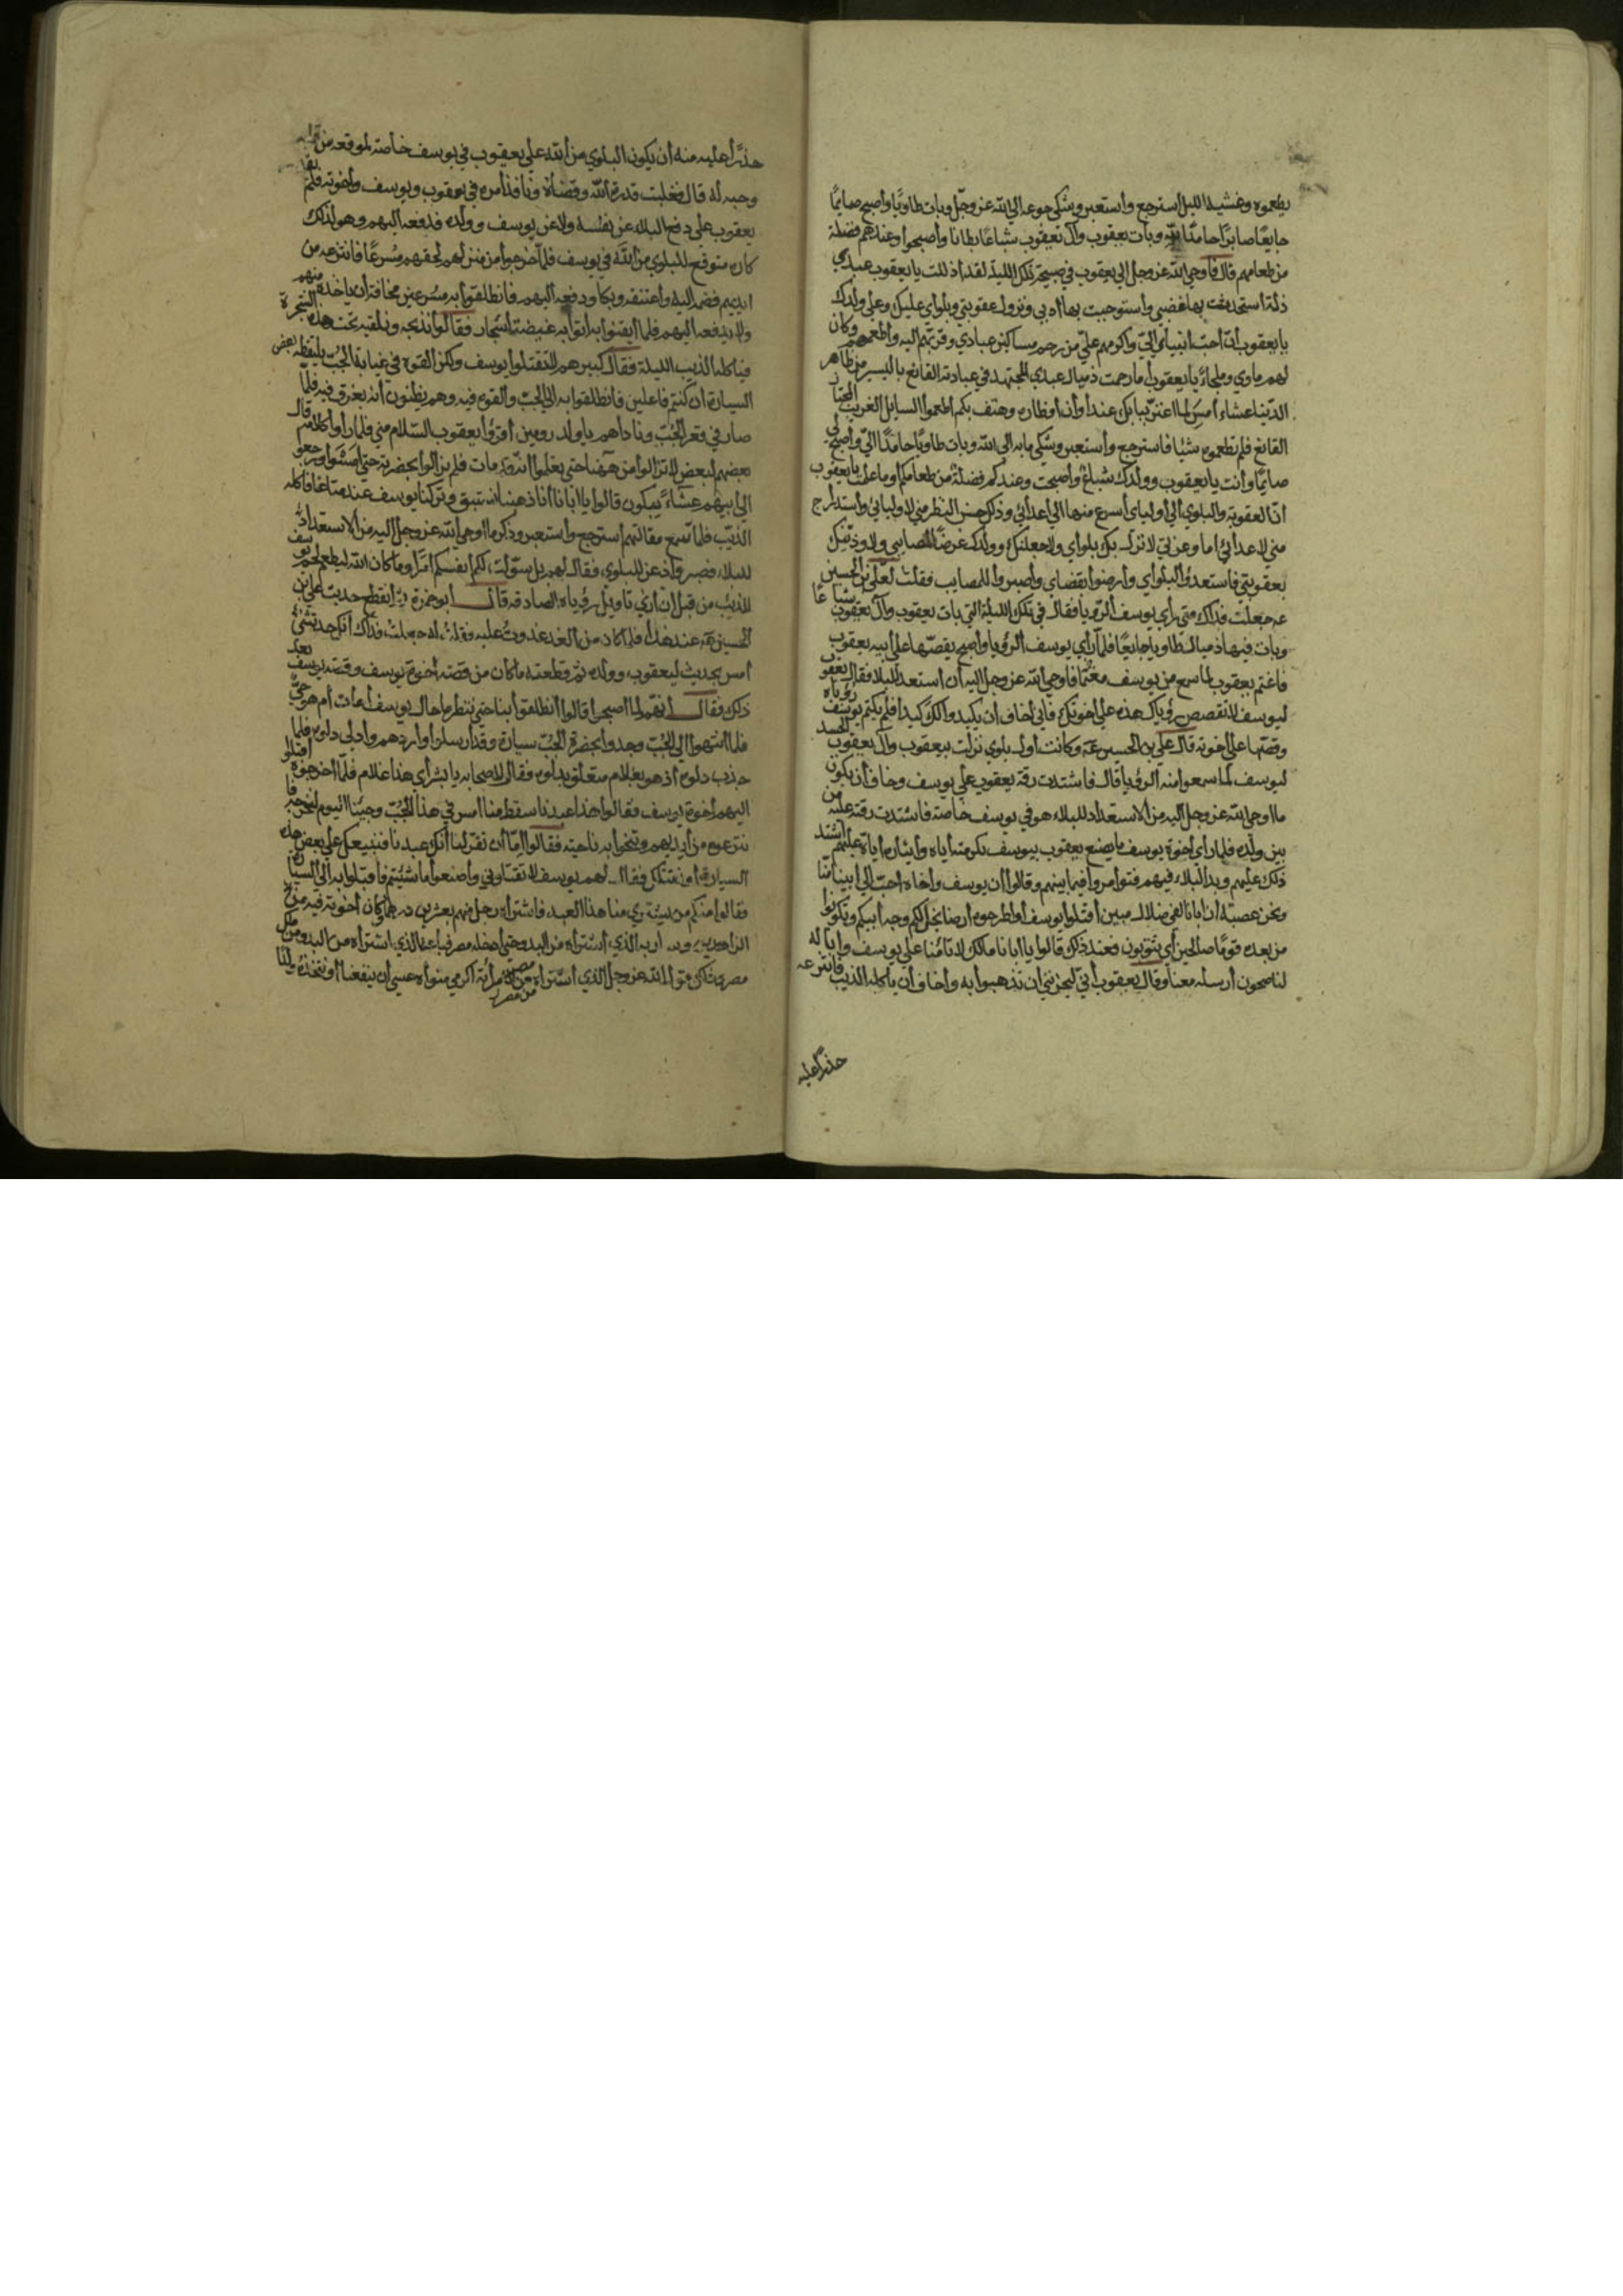 يطعموه وغشيه الليل استرجع وأستعبر وشكى جوعه الي الله عز وجل وبات طاويًا وأصبح صايمًا
جايعًا صابرًا حامدًا لله وبات يعقوب وآل يعقوب شباعًا بطانا وأصبحوا وعندهم فضلة
من طعامهم قال فأوحي الله عز وجل الي يعقوب في صبيحة تلك الليلة لقد أذللت يا يعقوب عبدي
ذلة أستجررت بها غضبي واستوجبت بها أدبي ونزول عقوبتي وبلواي عليك وعلي ولدك
يا يعقوب أن أحب أنبيائي الي وأكرمهم علي من رحم مساكين عبادي وقربهم اليه وأطعمهم وكان
لهم ماوي وملجاء يا يعقوب أما رحمت ذميال عبدي المجتهد في عبادته القانع باليسير من ظاهر
الدنيا عشاء أمس لما اعتر ببابك عند أوان أفطاره وهتف بكم أطعموا السايل الغريب المجتاز
القانع فلم تطعموه شيئا فاسترجع وأستعبر وشكي مابه الي الله وبات طاويًا حامدًا لي وأصبح لي
صايمًا وأنت يا يعقوب وولدك شباع وأصبحت وعندكم فضلة من طعامكم أوما علمت يا يعقوب
ان العقوبة والبلوي الي أوليائي أسرع منها الي أعدائي وذلك حسن النظر مني لاوليائي وأستدراج
مني لاعدائي اما وعزتي لانزل بك بلواي ولاجعلنك وولدك غرضًا لمصايبي ولاوذينك
بعقوبتي فاستعدوا لبلواي وأرضوا بقضاي وأصبروا للمصايب فقلت لعلي بن الحسين
عه جعلت فداك متي رأي يوسف الرؤيا فقال في تلك الليلة التي بات يعقوب وآل يعقوب شباعًا
وبات فيها ذميال طاويا جايعًا فلما رأي يوسف الرؤيا وأصبح يقصها علي أبيه يعقوب
فاغتم يعقوب لما سمع من يوسف مغتمًا فاوحي الله عز وجل اليه أن أستعد للبلا فقال يعقوب
ليوسف لا تقصص رؤياك هذه علي أخوتك فأني أخاف أن يكيدوا لك كيدا فلم يكتم يوسف رؤياه
وقصها علي أخوته قال علي بن الحسين عه وكانت أول بلوي نزلت بيعقوب وآل يعقوب الحسد
ليوسف لما سمعوا منه الرؤيا قال فاشتدت رقة يعقوب علي يوسف وخاف أن يكون
ما اوحي الله عز وجل اليه من الاستعداد للبلاء هو في يوسف خاصة فاشتدت رقته عليه من
بين ولده فلما رأي أخوة يوسف ما يصنع يعقوب بيوسف وتكرمته أياه وأيثاره أياه عليهم أشتد
ذلك عليهم وبدا البلاء فيهم فتوأمروا فيما بينهم وقالوا ان يوسف وأخاه أحب الي أبينا منا
ونحن عصبة أن أبانا لفي ضلال مبين أقتلوا يوسف أو أطرحوه أرضا يخل لكم وجه أبيكم وتكونوا
من بعده قومًا صالحين أي يتوبون فعند ذلك قالوا يا أبانا مالك لا تأمنا علي يوسف وإنا له
لناصحون أرسله معنا وقال يعقوب أني ليحزنني ان تذهبوا به وأخاف أن يأكله الذيب فانتزعه
حذرًا عليه
حذرًا عليه منه أن يكون البلوي من الله علي يعقوب في يوسف خاصة لموقعه من قلبه
وحبه له قال فغلبت قدرة الله وقضاؤه ونافذ أمره في يعقوب ويوسف وأخوته فلم يقدر
يعقوب علي دفع البلاء عن نفسه ولا عن يوسف وولده فدفعه اليهم وهو لذلك
كاره متوقع للبلوي من الله في يوسف فلما خرجوا من منزلهم لحقهم مسرعًا فانتزعه من
ايديهم فضمه اليه وأعتنقه وبكا ودفعه اليهم فانطلقوا به مسرعين مخافة ان ياخذه منهم
ولا يدفعه اليهم فلما أيقنوا به أتوا به غيضة أشجار فقالوا نذبحه ونلقيه تحت هذه الشجرة
فياكله الذيب الليلة فقال كبيرهم لا تقتلوا يوسف ولكن ألقوه في غيابة الجب يلتقطه بعض
السيارة أن كنتم فاعلين فانطلقوا به الي الجب وألقوه فيه وهم يظنون أنه يغرق فيه فلما
صار في قعر الجب وناداهم يا ولد رومين أقرؤا يعقوب السلام مني فلما رأوا كلامه قال
بعضهم لبعض لا تزالوا من هيهنا حتي تعلموا انه قد مات فلم يزالوا بحضرته حتي امسوا ورجعوا
الي أبيهم عشاء يبكون قالوا يا أبانا أنا ذهبنا نستبق وتركنا يوسف عند متاعنا فاكله
الذيب فلما سمع مقالتهم أسترجع وأستعبر وذكر ما اوحي الله عز وجل اليه من الاستعداد
للبلاء فصبر وأذعن للبلوي فقال لهم بل سولت لكم أنفسكم أمرًا وما كان الله ليطعم لحم يوسف
للذيب من قبل ان أري تاويل رؤياه الصادقة قال أبو حمزة ثم أنقطع حديث علي بن
الحسين عه عند هذا فلما كان من الغد غدوت عليه وقلت له جعلت فداك أنك حدثتني
أمس بحديث ليعقوب وولده ثم قطعته ما كان من قصة أخوة يوسف وقصة يوسف بعد
ذلك فقال أنهم لما أصبحوا قالوا أنطلقوا بنا حتي ننظر ما حال يوسف أمات أم هو حي
فلما انتهوا الي الجب وجدوا بحضرة الجب سيارة وقد أرسلوا واردهم وأدلي دلوه فلما
جذب دلوه أذ هو بغلام متعلق بدلوه فقال لاصحابه يا بشراي هذا غلام فلما أخرجوه أقبلوا
اليهم أخوة يوسف فقالوا هذا عبدنا سقط منا أمس في هذا الجب وجئنا اليوم لنخرجه فا
نتزعوه من أيديهم وتنحوا به ناحية فقالوا اما أن تقر لنا أنك عبد لنا فنبيعك علي بعض هذه
السيارة أو نقتلك فقال لهم يوسف لا تقتلوني وأصنعوا ما شئتم فأقبلوا به الي السيارة
فقالوا منكم من يشتري منا هذا العبد فاشتراه رجل منهم بعشرين درهما وكان أخوته فيه من
الزاهدين وسار به الذي أشتراه من البدو حتي أدخله مصر فباعه الذي اشتراه من البدو من ملك
مصر وذلك قول الله عز وجل وقال الذي أشتراه من مصر لامرأته أكرمي مثواه عسي أن ينفعنا أو نتخذه ولدًا
من مصر